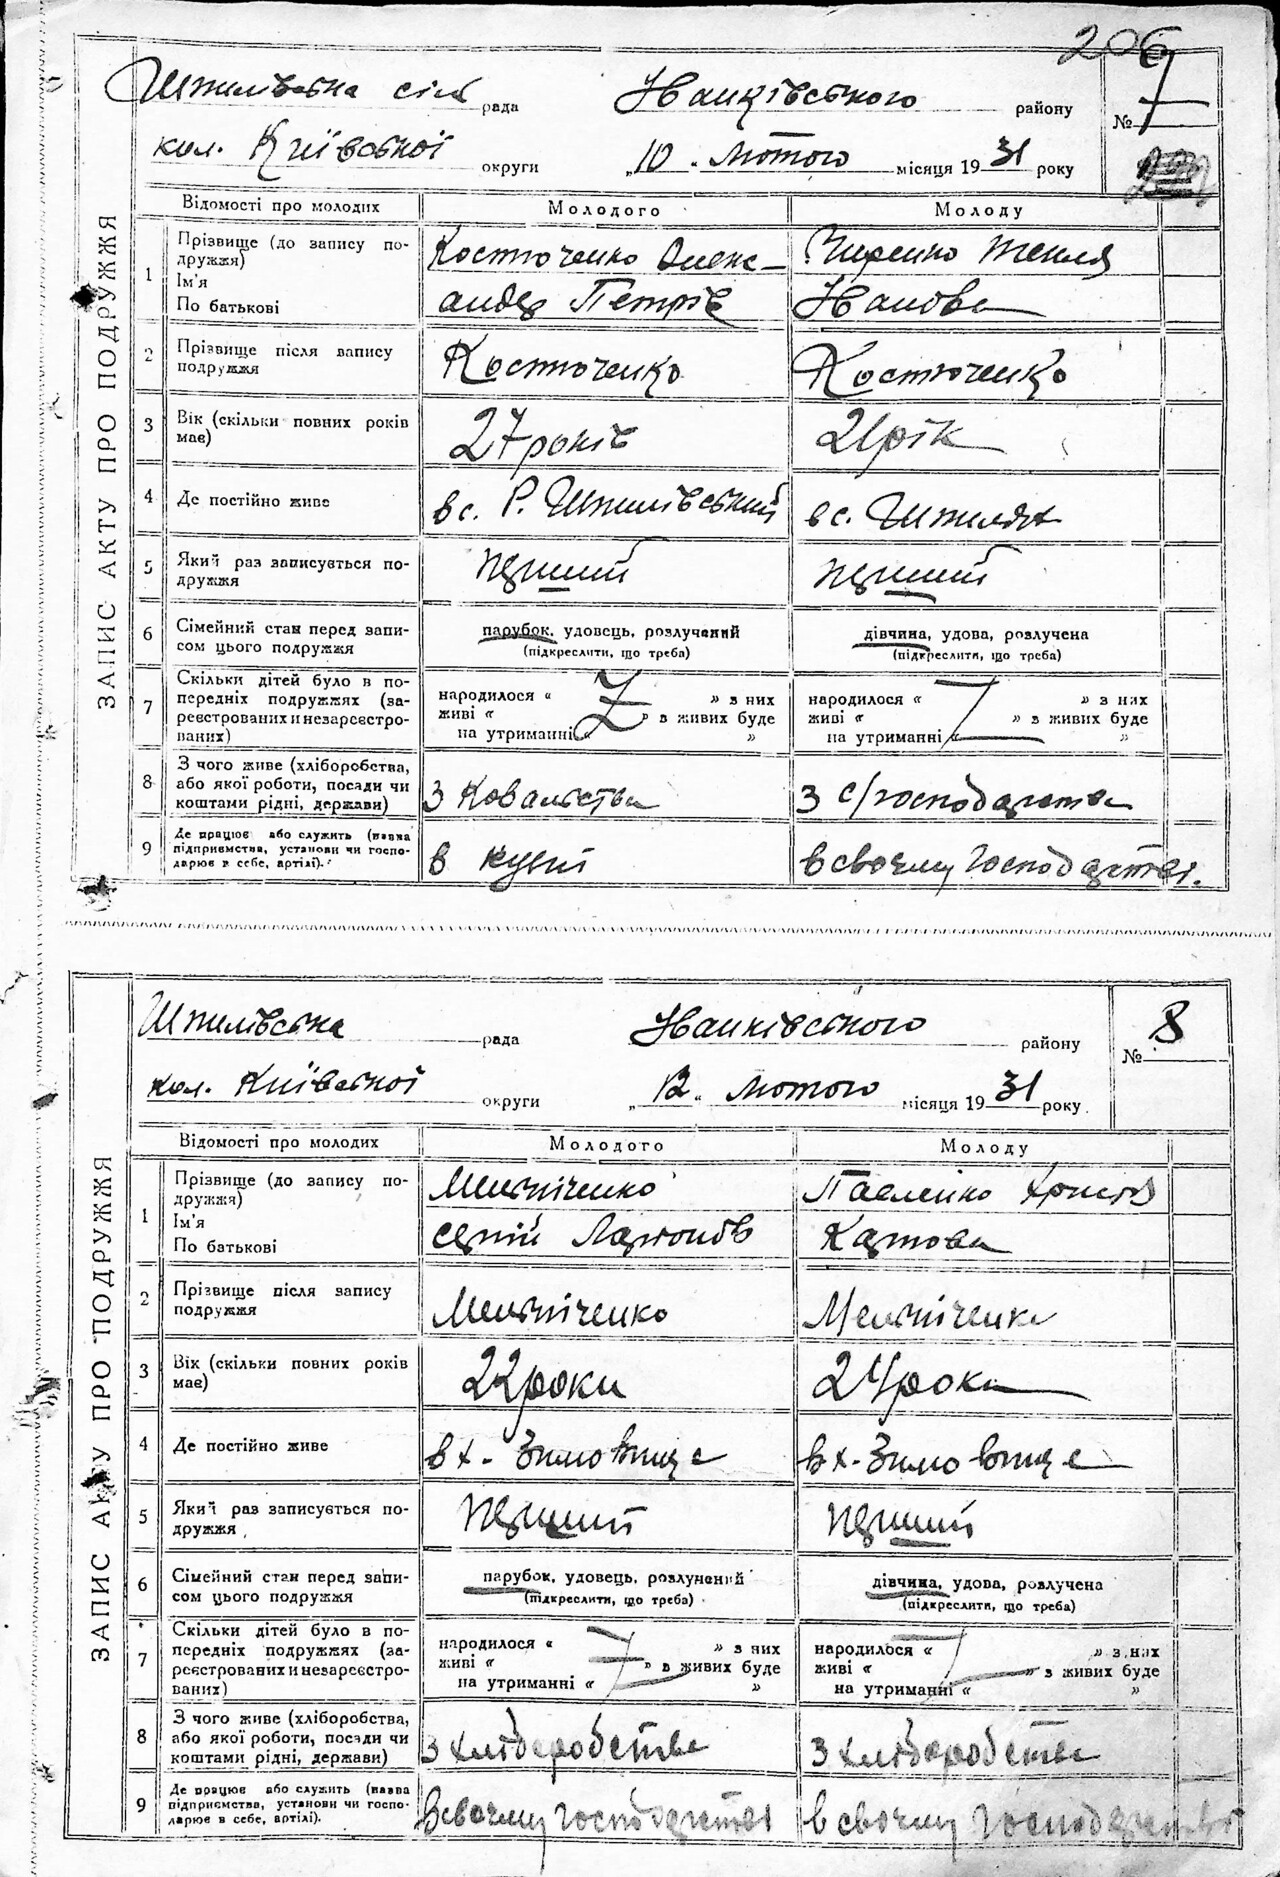 206
Шпилівська сіл рада Іванківського району № 7
кол. Київської округи „10" лютого місяця 1931 року
ЗАПИС АКТУ ПРО ПОДРУЖЖЯ
Відомості про молодих Молодого Молоду
1 Прізвище (до запису по-
дружжя)
Ім'я
По батькові
Костюченко Олекс-
андр Петрів
Текля
Іванова
2 Прізвище після запису
подружжя
Костюченко Костюченко
3 Вік (скільки повних років
має)
27 років 21 рік
4 Де постійно живе в с. Р. Шпилівський в с. Шпилях
5 Який раз записується по-
дружжя
перший перший
6 Сімейний стан перед запи-
сом цього подружжя
парубок, удовець, розлучений
(підкреслити, що треба)
дівчина, удова, розлучена
(підкреслити, що треба)
7 Скільки дітей було в по-
передніх подружжях (за-
реєстрованих и незареєстро-
ваних)
народилося « » з них
живі « » в живих буде
на утриманні « »
народилося « » з них
живі « » в живих буде
на утриманні « »
8 З чого живе (хліборобства,
або якої роботи, посади чи
коштами рідні, держави)
З ковальства З с/господарства
9 Де працює або служить (назва
підприємства, установи чи госпо-
дарює в себе, артілі).
в кузні в своєму господарстві.
Шпилівська рада Іванківського району № 8
кол. Київської округи „12" лютого місяця 1931 року
ЗАПИС АКТУ ПРО ПОДРУЖЖЯ
Відомості про молодих Молодого Молоду
1 Прізвище (до запису по-
дружжя)
Ім'я
По батькові
Мельніченко
Сергій Ларіонів
Павленко Христя
Карпова
2 Прізвище після запису
подружжя
Мельніченко Мельніченко
3 Вік (скільки повних років
має)
22 роки 24 роки
4 Де постійно живе в х. Зимовище в х. Зимовище
5 Який раз записується по-
дружжя
перший перший
6 Сімейний стан перед запи-
сом цього подружжя
парубок, удовець, розлучений
(підкреслити, що треба)
дівчина, удова, розлучена
(підкреслити, що треба)
7 Скільки дітей було в по-
передніх подружжях (за-
реєстрованих и незареєстро-
ваних)
народилося « » з них
живі « » в живих буде
на утриманні « »
народилося « » з них
живі « » в живих буде
на утриманні « »
8 З чого живе (хліборобства,
або якої роботи, посади чи
коштами рідні, держави)
З хліборобства З хліборобства
9 Де працює або служить (назва
підприємства, установи чи госпо-
дарює в себе, артілі).
в своєму господарстві в своєму господарстві